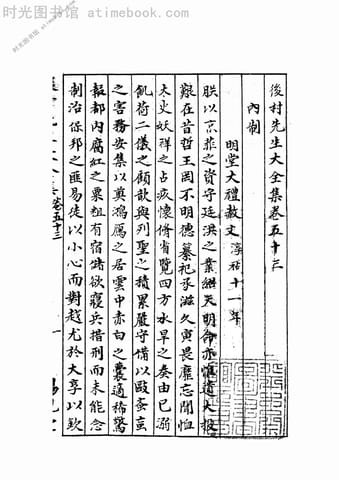 时光图书馆 - atimebook.com
後村先生大全集卷五十三
內制
明堂大禮赦文 淳祐十一年
朕以京菲之資守廷洪之業繼天明命亦惟遺大投
艱在昔哲王罔不明德纂祀丞滋久寅畏靡忘聞恤
太史妖祥之占疚懷脩省覽四方水旱之奏由已溺
飢荷二儀之顧歆與列聖之積累嚴守備以毆蚕䖝
之害務安集以奠鴻鴈之居雲中赤白之囊通稀驚
報都內腐紅之粟粗有宿儲欲寢兵措刑而未能念
制治保邦之匪易徒以小心而對越尤於大享以欽